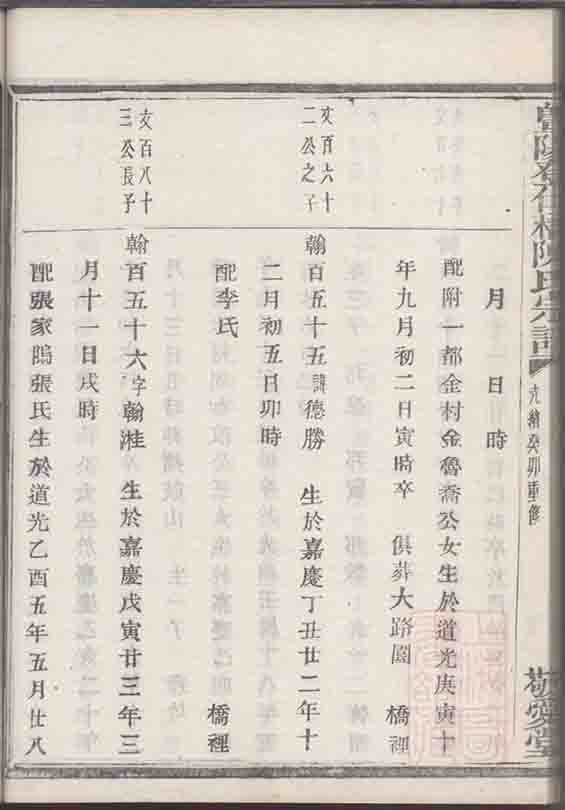 陳氏宗譜
光緒癸卯重修
敬愛堂
月　日　時
配附一都金村金魯喬公女生於道光庚寅十
年九月初二日寅時卒　俱葬大路園　橋裡
文百六十
二公之子
翰百五十五諱德勝　生於嘉慶丁丑廿二年十
二月初五日卯時
配李氏　橋裡
文百八十
三公長子
翰百五十六字翰浩　生於嘉慶戊寅廿三年三
月十一日戌時
配張家塢張氏生於道光乙酉五年五月廿八